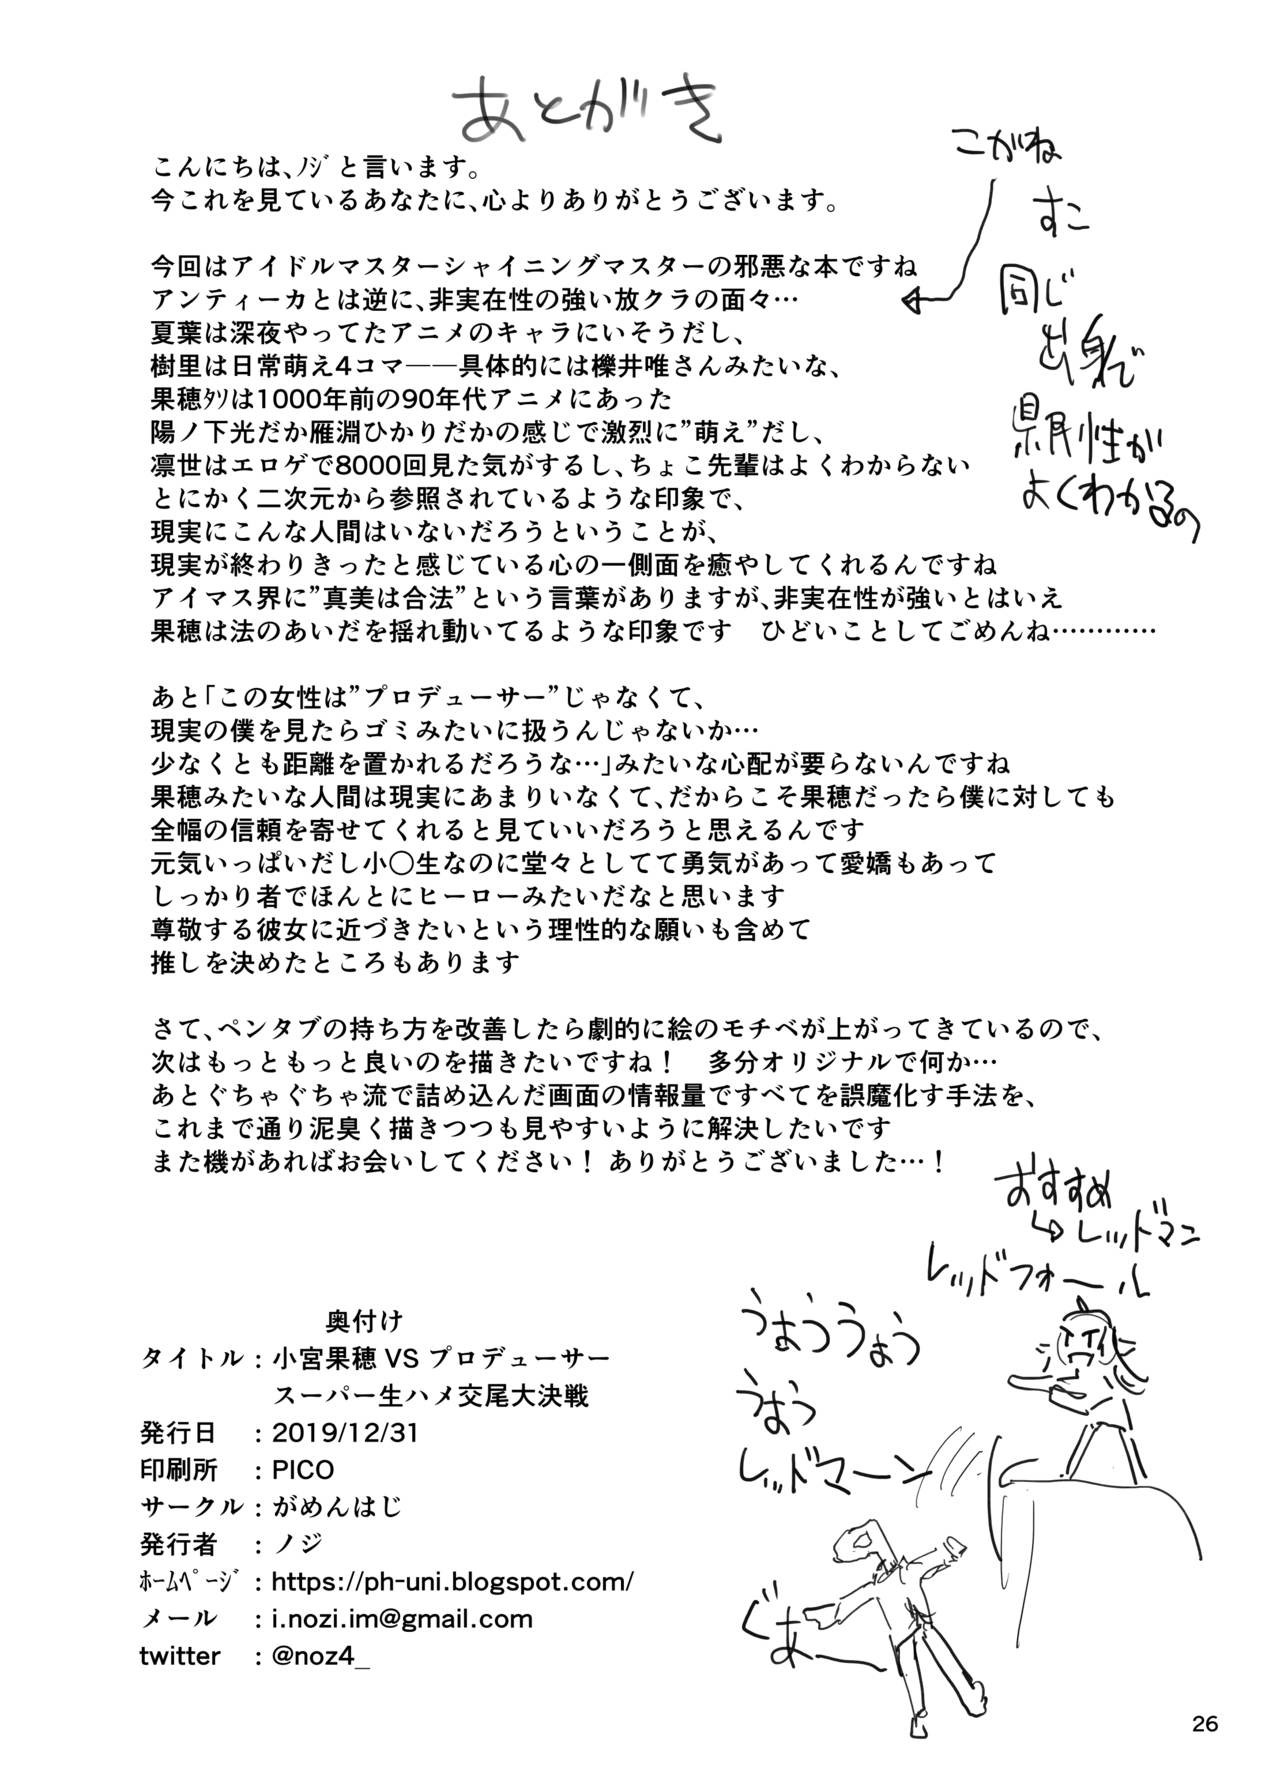 あとがき
こんにちは、ノジと言います。
今これを見ているあなたに、心よりありがとうございます。
今回はアイドルマスターシャイニングマスターの邪悪な本ですね
アンティーカとは逆に、非実在性の強い放クラの面々…
夏葉は深夜やってたアニメのキャラにいそうだし、
樹里は日常萌え4コマ――具体的には櫟井唯さんみたいな、
果穂ﾀｿは1000年前の90年代アニメにあった
陽ノ下光だか雁淵ひかりだかの感じで激烈に”萌え”だし、
凛世はエロゲで8000回見た気がするし、ちょこ先輩はよくわからない
とにかく二次元から参照されているような印象で、
現実にこんな人間はいないだろうということが、
現実が終わりきったと感じている心の一側面を癒やしてくれるんですね
アイマス界に”真美は合法”という言葉がありますが、非実在性が強いとはいえ
果穂は法のあいだを揺れ動いてるような印象です　ひどいことしてごめんね…………
こがね
すこ
同じ
出身で
県民性が
よくわかるの
あと「この女性は”プロデューサー”じゃなくて、
現実の僕を見たらゴミみたいに扱うんじゃないか…
少なくとも距離を置かれるだろうな…」みたいな心配が要らないんですね
果穂みたいな人間は現実にあまりいなくて、だからこそ果穂だったら僕に対しても
全幅の信頼を寄せてくれると見ていいだろうと思えるんです
元気いっぱいだし小〇生なのに堂々としてて勇気があって愛嬌もあって
しっかり者でほんとにヒーローみたいだなと思います
尊敬する彼女に近づきたいという理性的な願いも含めて
推しを決めたところもあります
さて、ペンタブの持ち方を改善したら劇的に絵のモチベが上がってきているので、
次はもっともっと良いのを描きたいですね！　多分オリジナルで何か…
あとぐちゃぐちゃ流で詰め込んだ画面の情報量ですべてを誤魔化す手法を、
これまで通り泥臭く描きつつも見やすいように解決したいです
また機があればお会いしてください！ ありがとうございました…！
おすすめ
レッドマン
レッドフォール
うおううおう
うおう
レッドマーン
ぐあー
奥付け
タイトル：小宮果穂 VS プロデューサー
スーパー生ハメ交尾大決戦
発行日　：2019/12/31
印刷所　：PICO
サークル：がめんはじ
発行者　：ノジ
ﾎｰﾑﾍﾟｰｼﾞ：https://ph-uni.blogspot.com/
メール　：i.nozi.im@gmail.com
twitter　：@noz4_
26